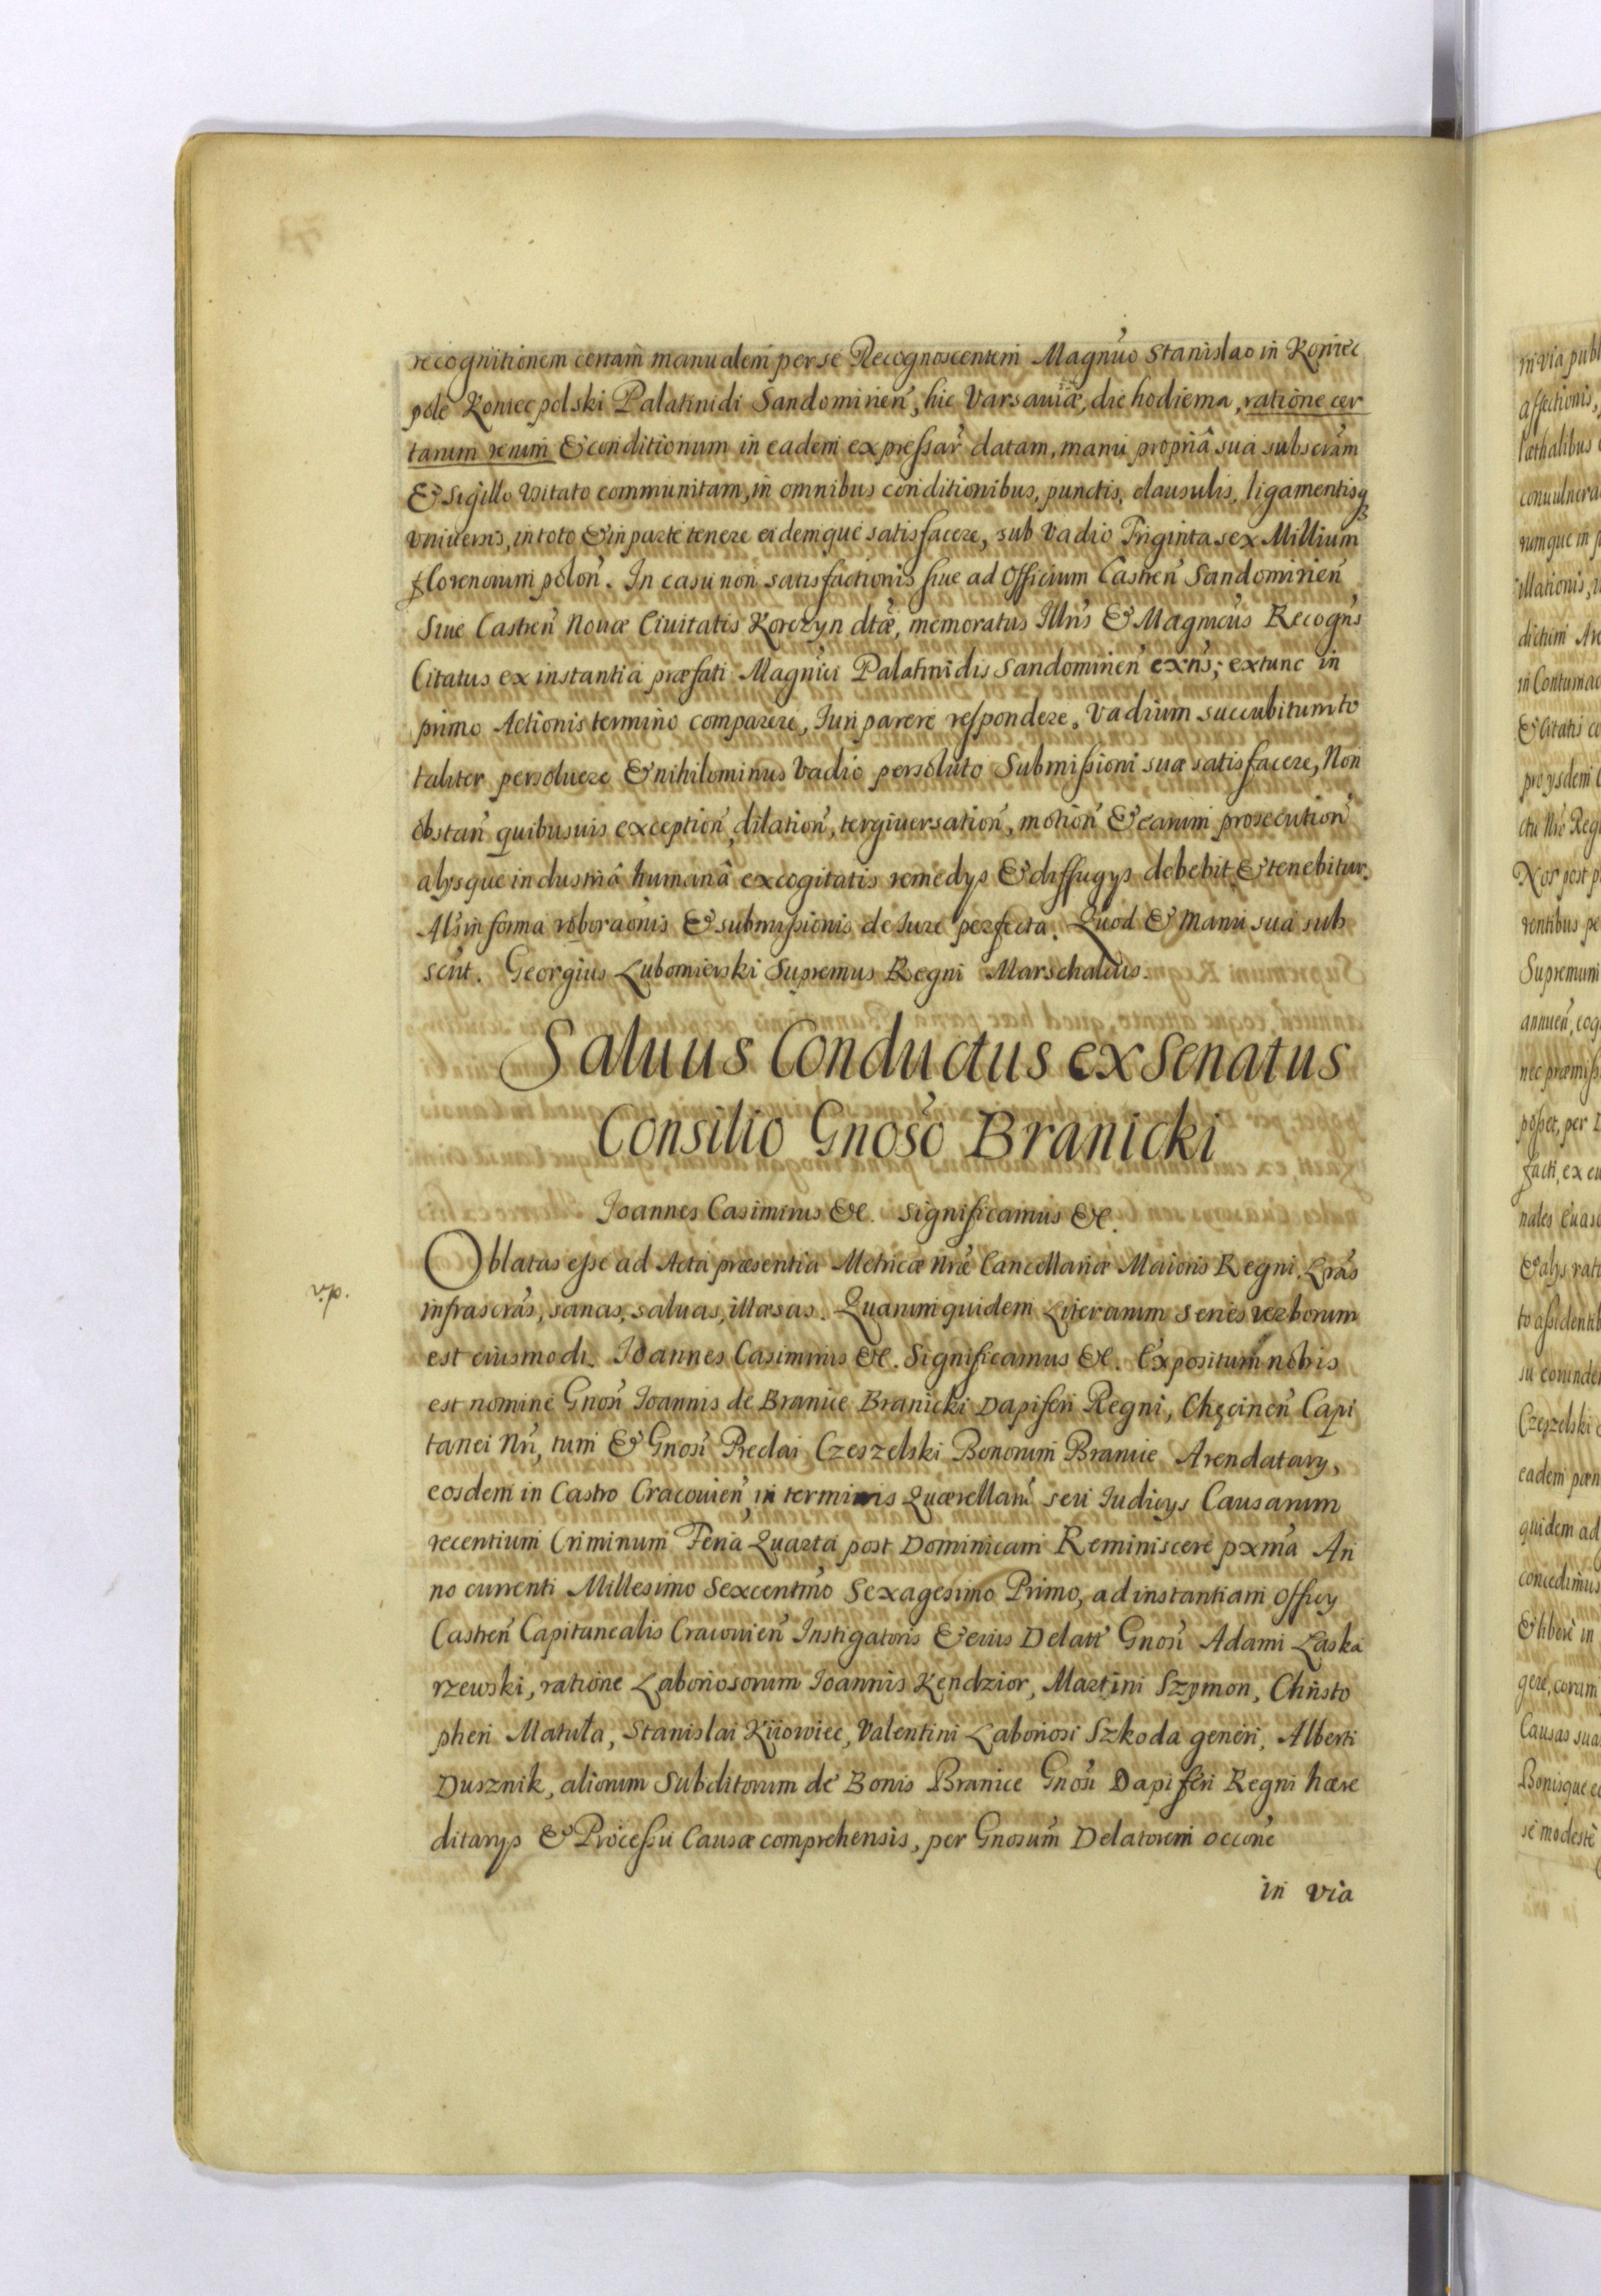 recognitionem certam manualem per se Recognoscentem Magnco Stanislao in Koniec
pole Koniecpolski Palatinidi Sandomirien, hic Varsaviæ, die hodierna, ratione cer
tarum rerum & conditionum in eadem expressar datam, manu propriâ sua subscram
& Sigillo Usitato communitam, in omnibus conditionibus, punctis, clausulis, ligamentisq
universis, in toto & in parte tenere eidemque satisfacere, sub Vadio Triginta sex Millium
florenorum polon. In casu non satisfactionis siue ad Officium Castren Sandomirien
Siue Castren Nouæ Ciuitatis Korczyn dtæ, memoratus Illris & Magnicus Recogns
Citatus ex instantia præfati Magnici Palatinidis Sandomirien exns; extunc in
primo Actionis termino comparere, Iuri parere respondere, Vadium succubitum to
taliter persoluere & nihilominus Vadio persoluto Submissioni suæ satisfacere, Non
obstan quibusuis exception, dilation, tergiuersation, motion & earum prosecution
alysque industriâ humanâ excogitatis remedys & diffugys debebit & tenebitur.
Als in forma roboraonis & submissionis de Iure perfecta. Quod & manu sua sub
scrit. Georgius Lubomierski Supremus Regni Marschalcus.
Saluus Conductus ex Senatus
Consilio Gnoso Branicki
Ioannes Casimirus &c. Significamus &c.
Oblatas esse ad Acta præsentia Metricæ Nræ Cancellariæ Maioris Regni Lras
infrascras, sanas, saluas, illæsas. Quarum quidem Literarum series verborum
est eiusmodi. Ioannes Casimirus &c. Significamus &c. Expositum nobis
est nomine Gnosi Ioannis de Branice Branicki Dapiferi Regni, Chęcinen Capi
tanei Nri, tum & Gnosi Preclai Czeszelski Bonorum Branice Arendatary,
eosdem in Castro Cracouien in terminis Quærellaru seu Iudicys Causarum
recentium Criminum Feria Quarta post Dominicam Reminiscere pxma An
no currenti Millesimo Sexcentmo Sexagesimo Primo, ad instantiam Officy
Castren Capitanealis Cracouien Instigatoris & eius Delatt Gnosi Adami Laska
rzewski, ratione Laboriosorum Ioannis Kendzior, Martini Szymon, Christo
pheri Matuła, Stanislai Kiiowiec, Valentini Laboriosi Szkoda generi, Alberti
Dusznik, aliorum Subditorum de Bonis Branice Gnosi Dapiferi Regni hære
ditarys & Processu Causæ comprehensis, per Gnosum Delatorem occone
in via